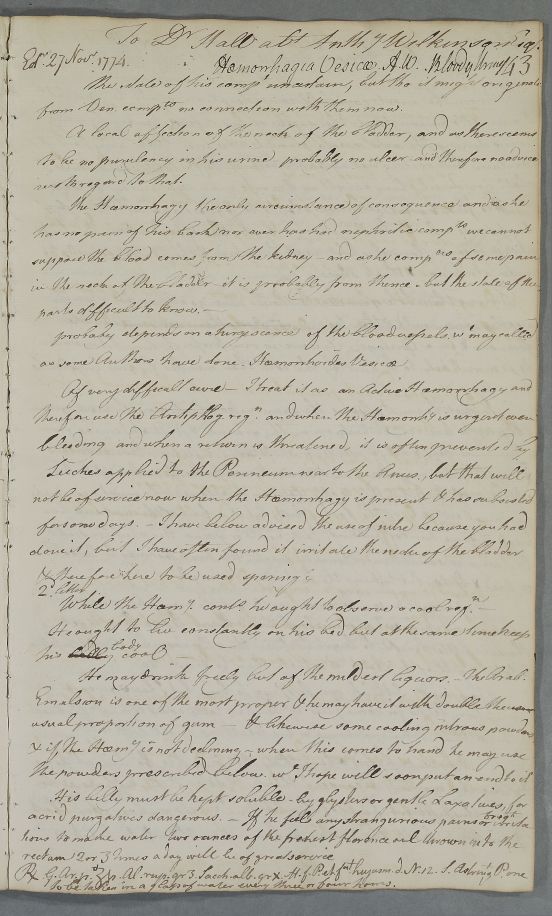 To Dr Mall abt Anthy Wilkinson Esq.
Edr. 27 Novr. 1774. Hæmorrhagia Vesicæ A.W. Bloody Urine 43
The state of his compt uncertain, but tho it might originate
from Ven compts no connection with them now.
A local affection of the neck of the Bladder, and as there seems
to be no purulency in his urine probably no ulcer and therefore no advice
with regard to that.
The Hæmorrhagy the only circumstance of consequence and as he
has no pain of his back nor ever has had nephritic compts we cannot
suppose the blood comes from the kidney – and as he compns of some pain
in the neck of the bladder it is probably from thence but the state of the
parts difficult to know. –
probably depends on a turgescence of the blood vessels, wt may call'd
as some Authors have done Hæmorrhoides Vesicæ
Of very difficult cure – I treat it as an Active Hæmorrhagy and
therefore use the Antiphlog regn. and when the Hæmorrhy is urgent even
bleeding and when a return is threatened, it is often prevented by
Leeches applied to the Perineum near to the Anus, but that will
not be of service now when the Hæmorrhagy is present & has subsisted
for some days. – I have below advised the use of nitre because you had
done it, but I have often found it irritate the neck of the bladder
& therefore here to be used sparingly
2d letter
While the Hæmy. conts. he ought to observe a cool regn. –
He ought to lie constantly on his bed but at the same time keep
his body cool –
He may drink freely but of the mildest liquors. – The Arab.
Emulsion is one of the most proper & he may have it with double the
usual proportion of gum – & likewise some cooling nitrous powders
& if the Hæmy. is not declining – when this comes to hand he may use
the powders prescribed below. wt I hope will soon put an end to it
His belly must be kept soluble by glysters or gentle Laxatives, for
acrid purgatives dangerous. – If he feels any strangurious pains or freqt irrita
tions to make water two ounces of the freshest florence oil thrown into the
rectum 2 or 3 times a day will be of great service
Rx G. Ar. pulv. Al. rup. gr 3. Sacch. alb. gr x. M. f. Pulv. hujusm. d. N. 12. S. Astring Pone
to be taken in a glass of water every three or four hours.